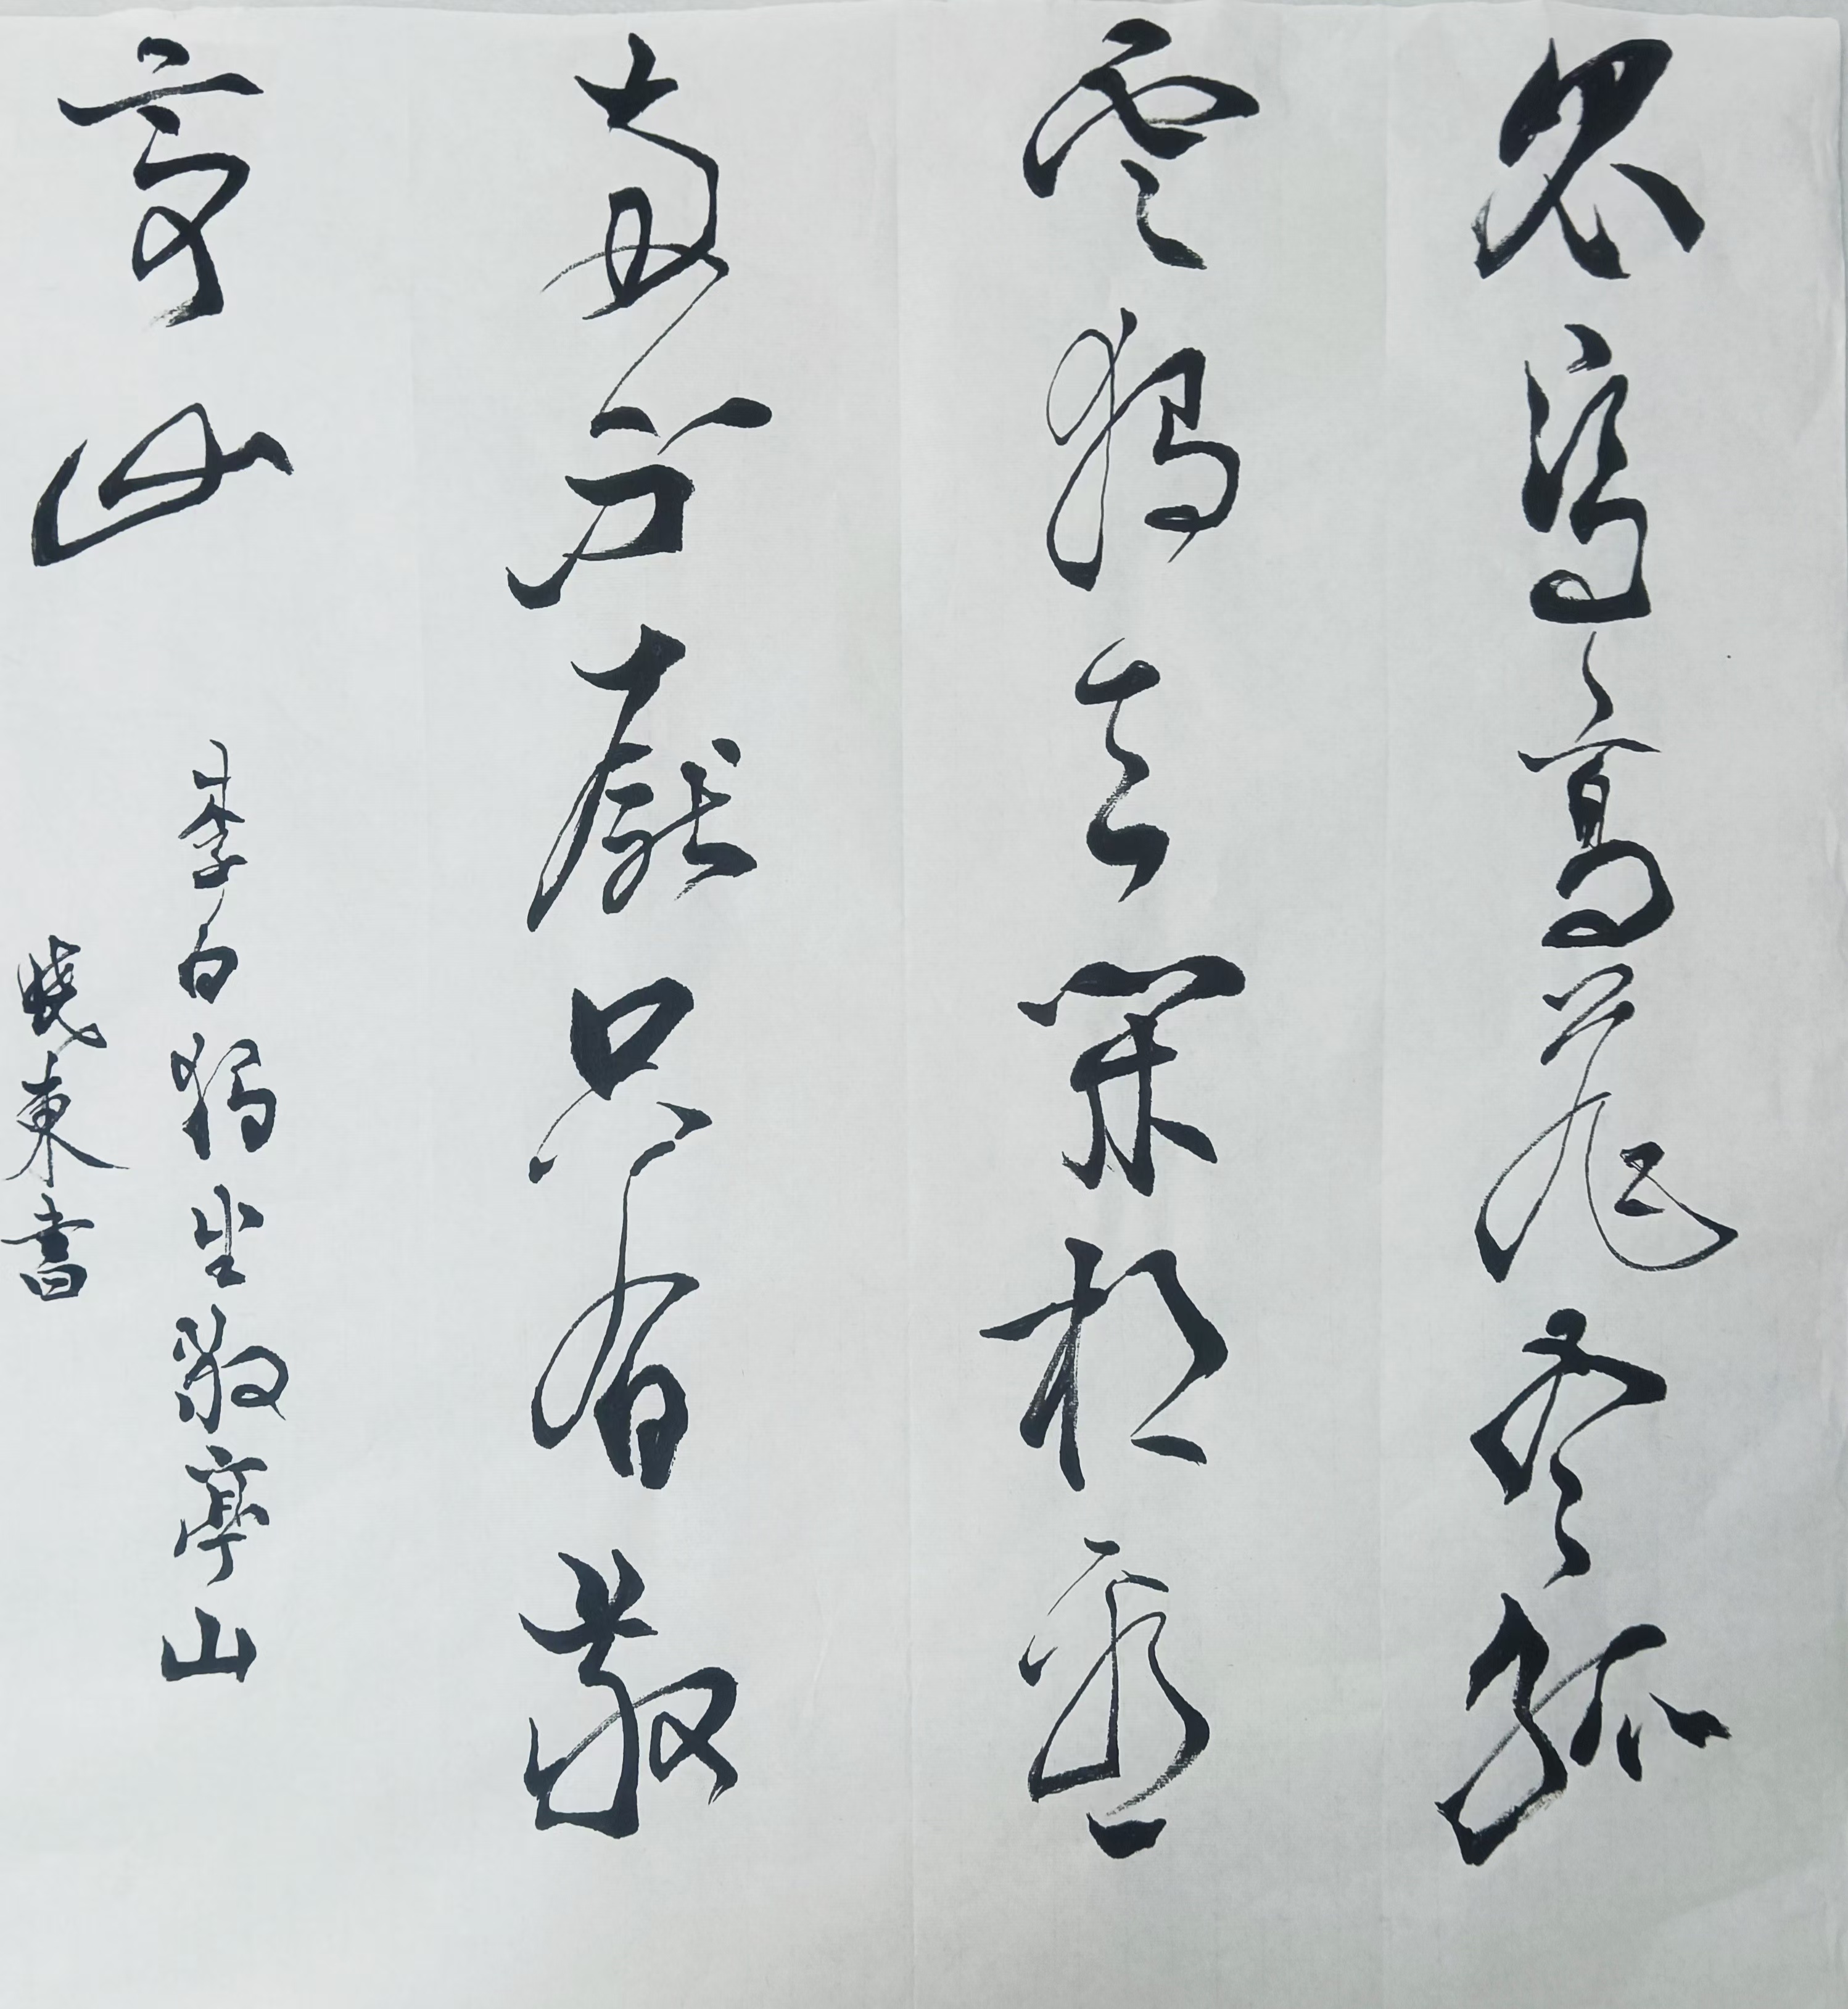 眾鳥高飛盡孤
雲獨去閑相看
兩不厭只有敬
亭山
李白獨坐敬亭山
曉東書